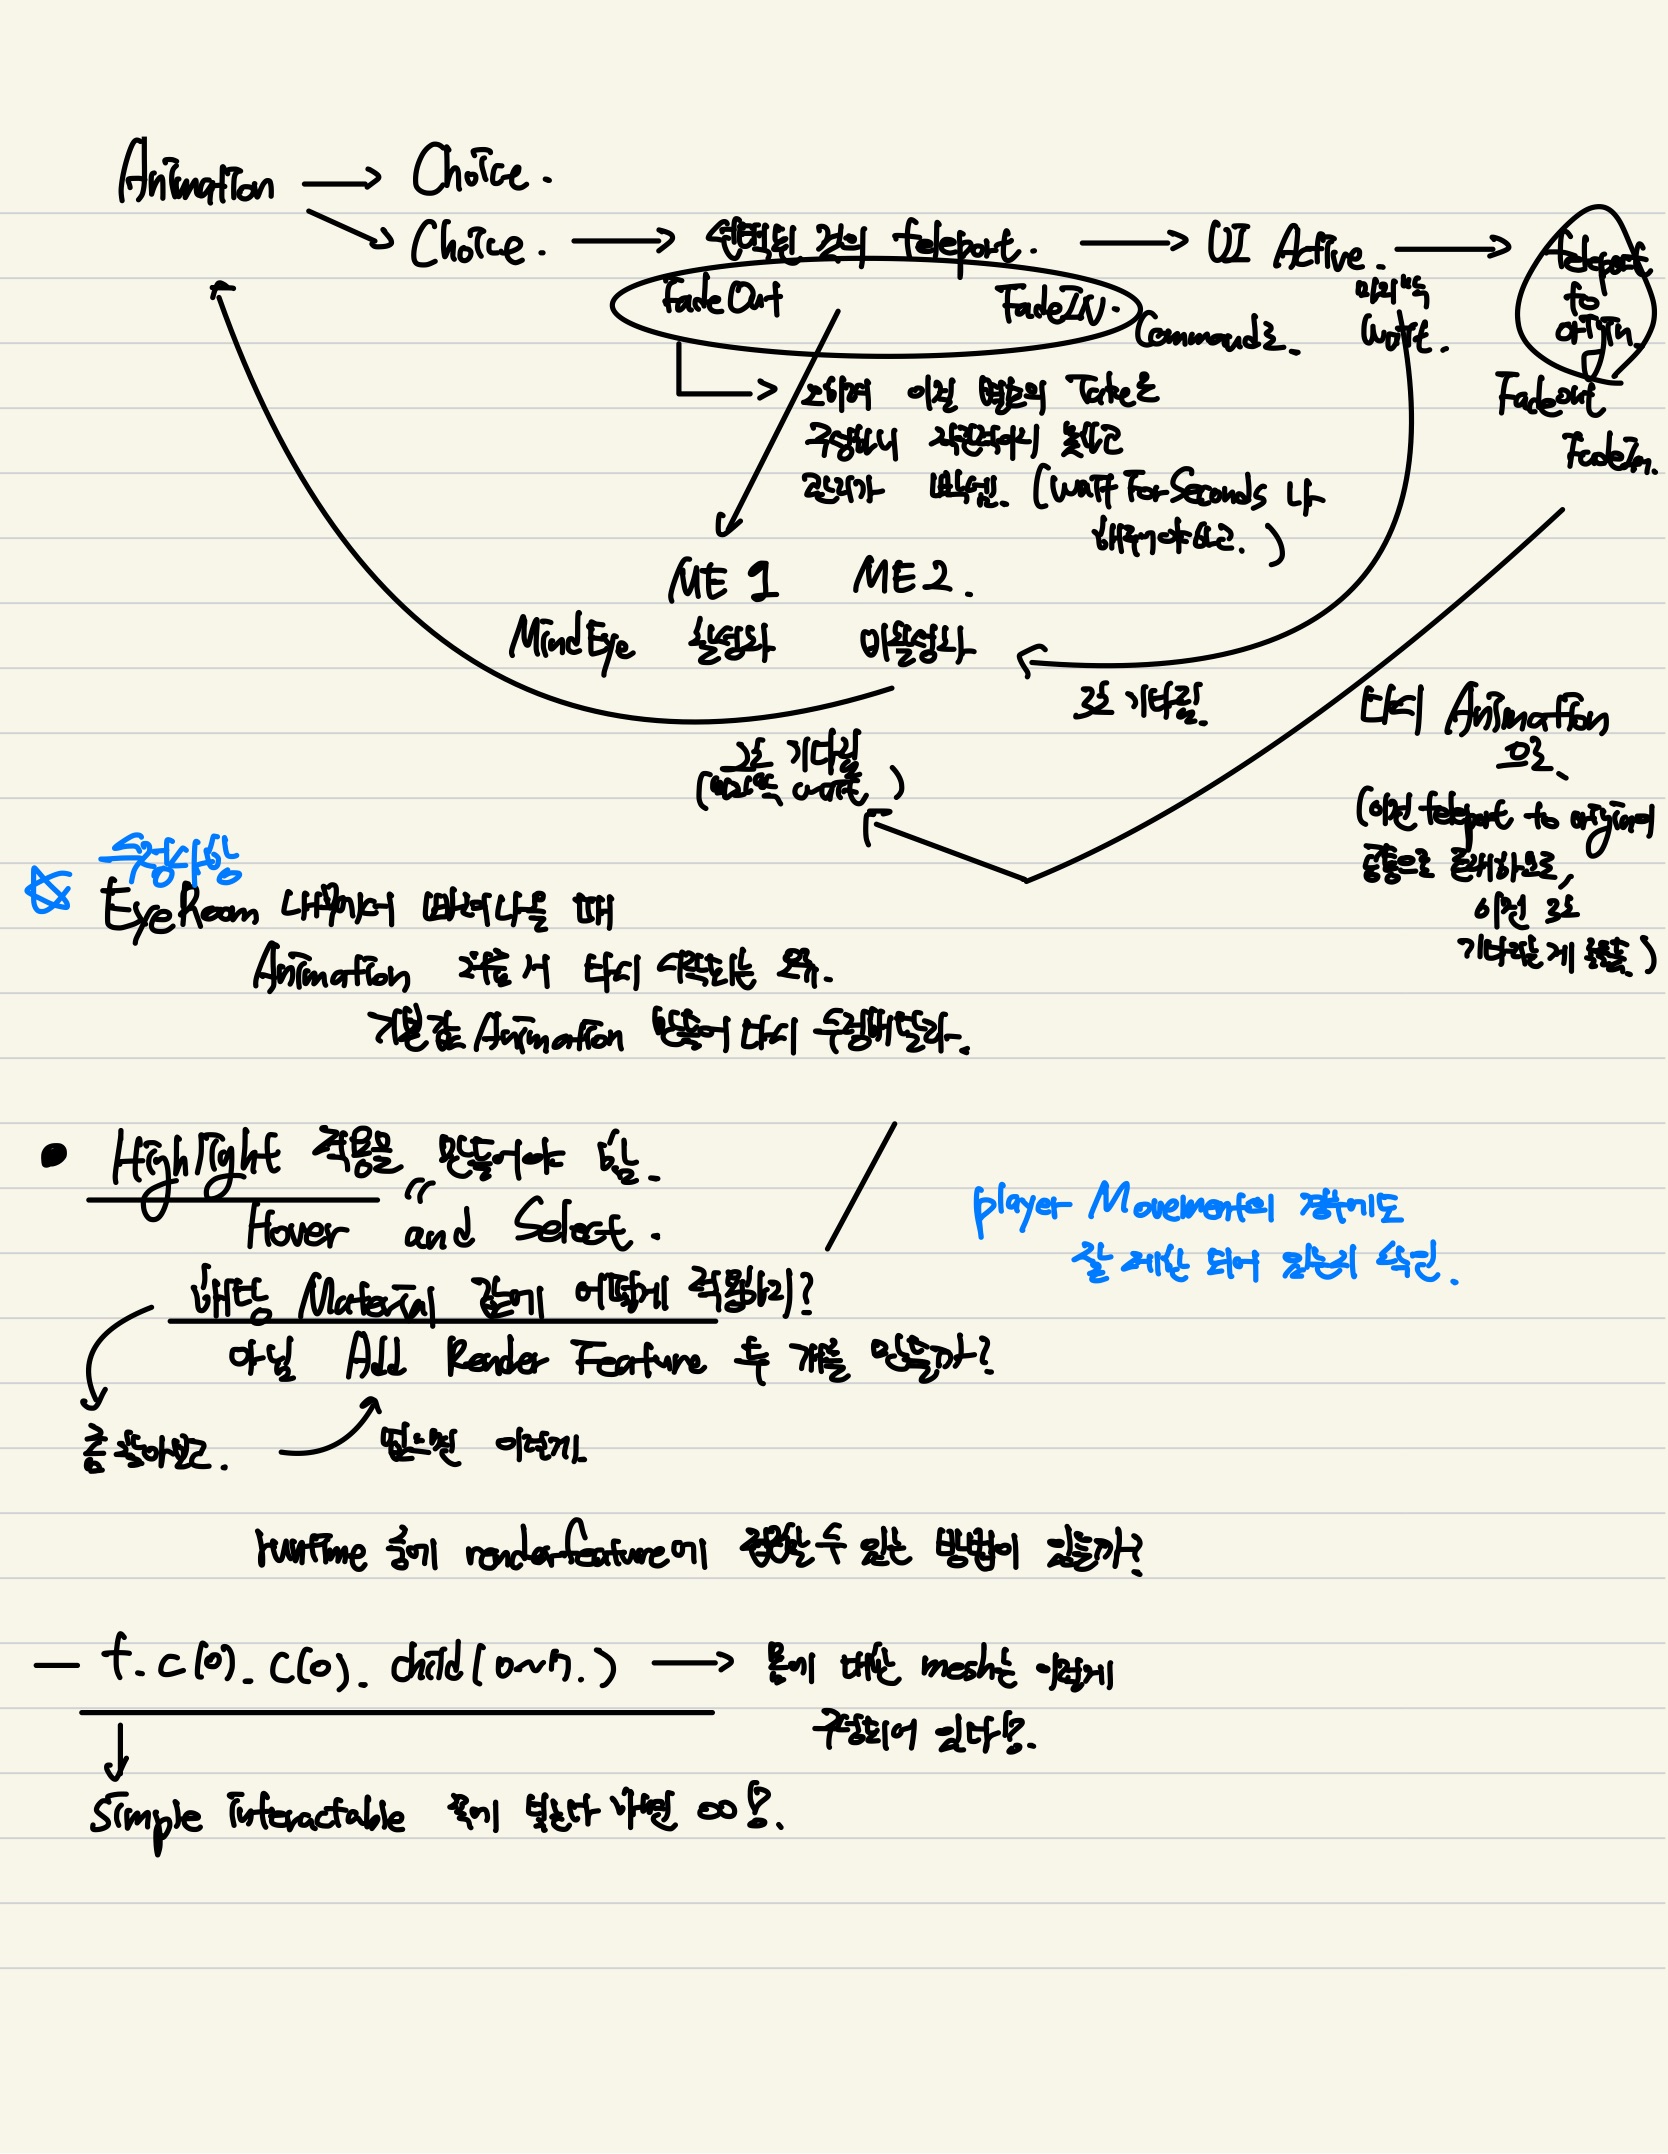 Animation → Choice.
Choice. → 선택된 것의 teleport. → UI Active. → teleport
to
origin.
마지막
Wait.
FadeOut FadeIN.
Command로.
FadeOut
FadeIn.
오히려 이걸 별도의 Take로
구성하니 직관적이지 않고
관리가 빡셈. (Wait For Seconds 나
해주어야하고. )
ME 1 ME 2.
MindEye 활성화 비활성화
코드 기다림.
코드 기다림
다시 Animation
으로.
(이건 teleport to origin이
공통으로 존재하므로,
이전 코드
기다리는 게 좋을.)
수정사항
EyeRoom 내부에서 빠져나올 때
Animation 자동 시 다시 시작되는 오류.
기본값 Animation 만들어 다시 수정해달라.
Highlight 적용을 만들어야 함.
Hover and Select.
player Movement의 경우에도
잘 제한 되어 있는지 확인.
해당 Material 값에 어떻게 적용하지?
아님 Add Render Feature 두 개를 만들까?
좀 찾아보고. 없으면 이렇게.
runtime 중에 renderfeature에 접근할 수 있는 방법이 있을까?
— t. c(0). c(0). child(0~7.) → 몸에 대한 mesh는 이렇게
구성되어 있다!?.
Simple interactable 쪽에 넣는다 하면 ㅇㅇ!?.